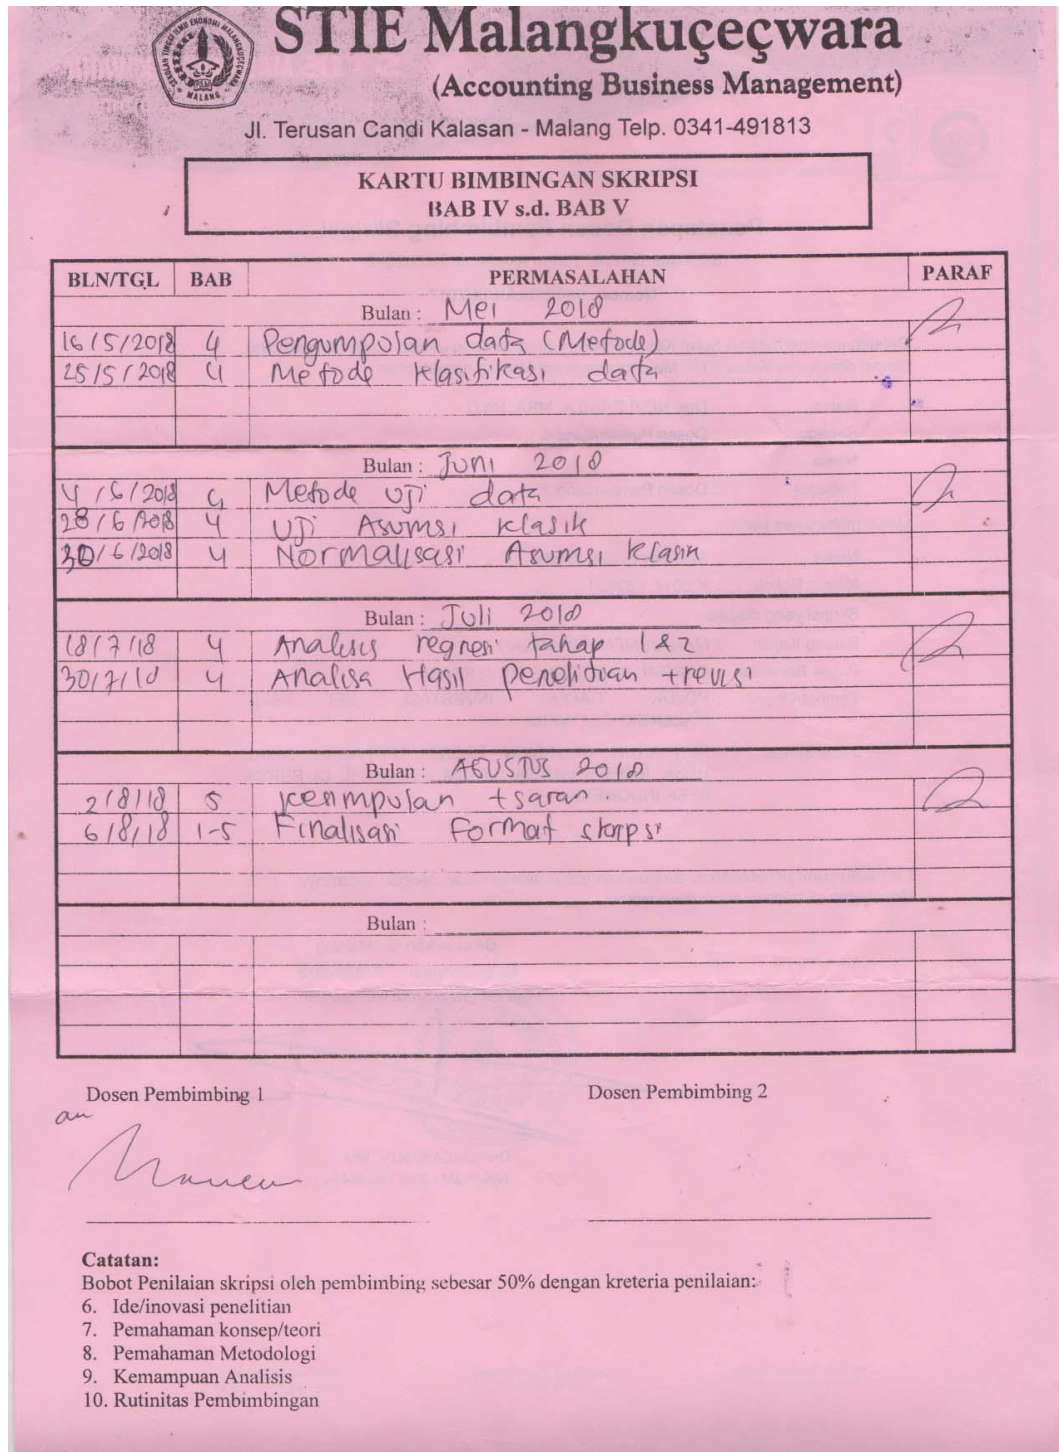 SEKOLAH TINGGI ILMU EKONOMI MALANGKUÇEÇWARA
MALANG
STIE Malangkuçeçwara
(Accounting Business Management)
Jl. Terusan Candi Kalasan - Malang Telp. 0341-491813
KARTU BIMBINGAN SKRIPSI
BAB IV s.d. BAB V
BLN/TGL BAB PERMASALAHAN PARAF
Bulan : Mei 2018
16/5/2018 4 Pengumpulan data (Metode)
25/5/2018 4 Metode klasifikasi data
Bulan : Juni 2018
4/6/2018 4 Metode uji data
28/6/2018 4 Uji Asumsi klasik
30/6/2018 4 Normalisasi Asumsi klasik
Bulan : Juli 2018
18/7/18 4 Analisis regresi tahap 1 & 2
30/7/18 4 Analisa Hasil penelitian + revisi
Bulan : AGUSTUS 2018
2/8/18 5 kesimpulan + saran
6/8/18 1-5 Finalisasi Format skripsi
Bulan :
Dosen Pembimbing 1 Dosen Pembimbing 2
an
Catatan:
Bobot Penilaian skripsi oleh pembimbing sebesar 50% dengan kreteria penilaian:
6. Ide/inovasi penelitian
7. Pemahaman konsep/teori
8. Pemahaman Metodologi
9. Kemampuan Analisis
10. Rutinitas Pembimbingan